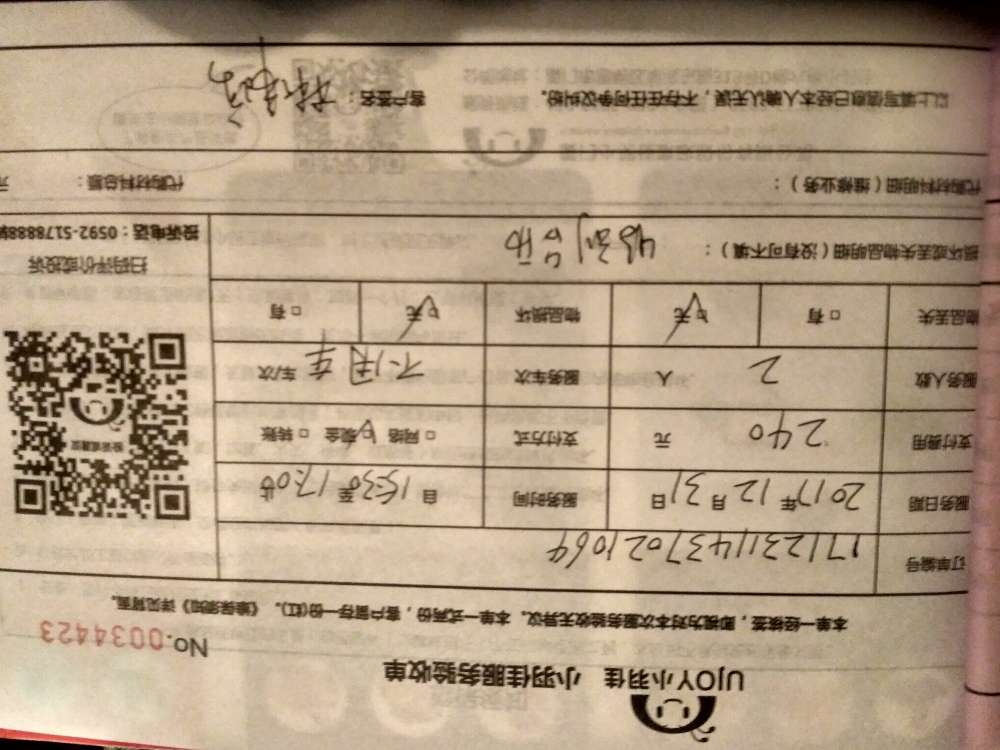 UJOY小羽佳 小羽佳服务验收单
No.0034423
本单一经续签，即视为对本次服务验收无异议。本单一式两份，客户留存一份(红)。《维保须知》详见背面。
订单编号 1712311437021069
服务日期 2017年12月31日 服务时间 自15:30至17:00止
支付费用 240 元 支付方式 □网络 ☑现金 □转账
服务人数 2 人 服务车次 不用车 车/次
物品丢失 □有 ☑无 物品损坏 ☑无 □有
损坏或丢失物品明细（没有可不填）：
扫码评价或投诉
投诉电话：0592-5178888转
代购材料明细（维修业务）： 代购材料总额： 元
以上填写信息已经本人确认无误，不存在任何争议纠纷。 客户签名：